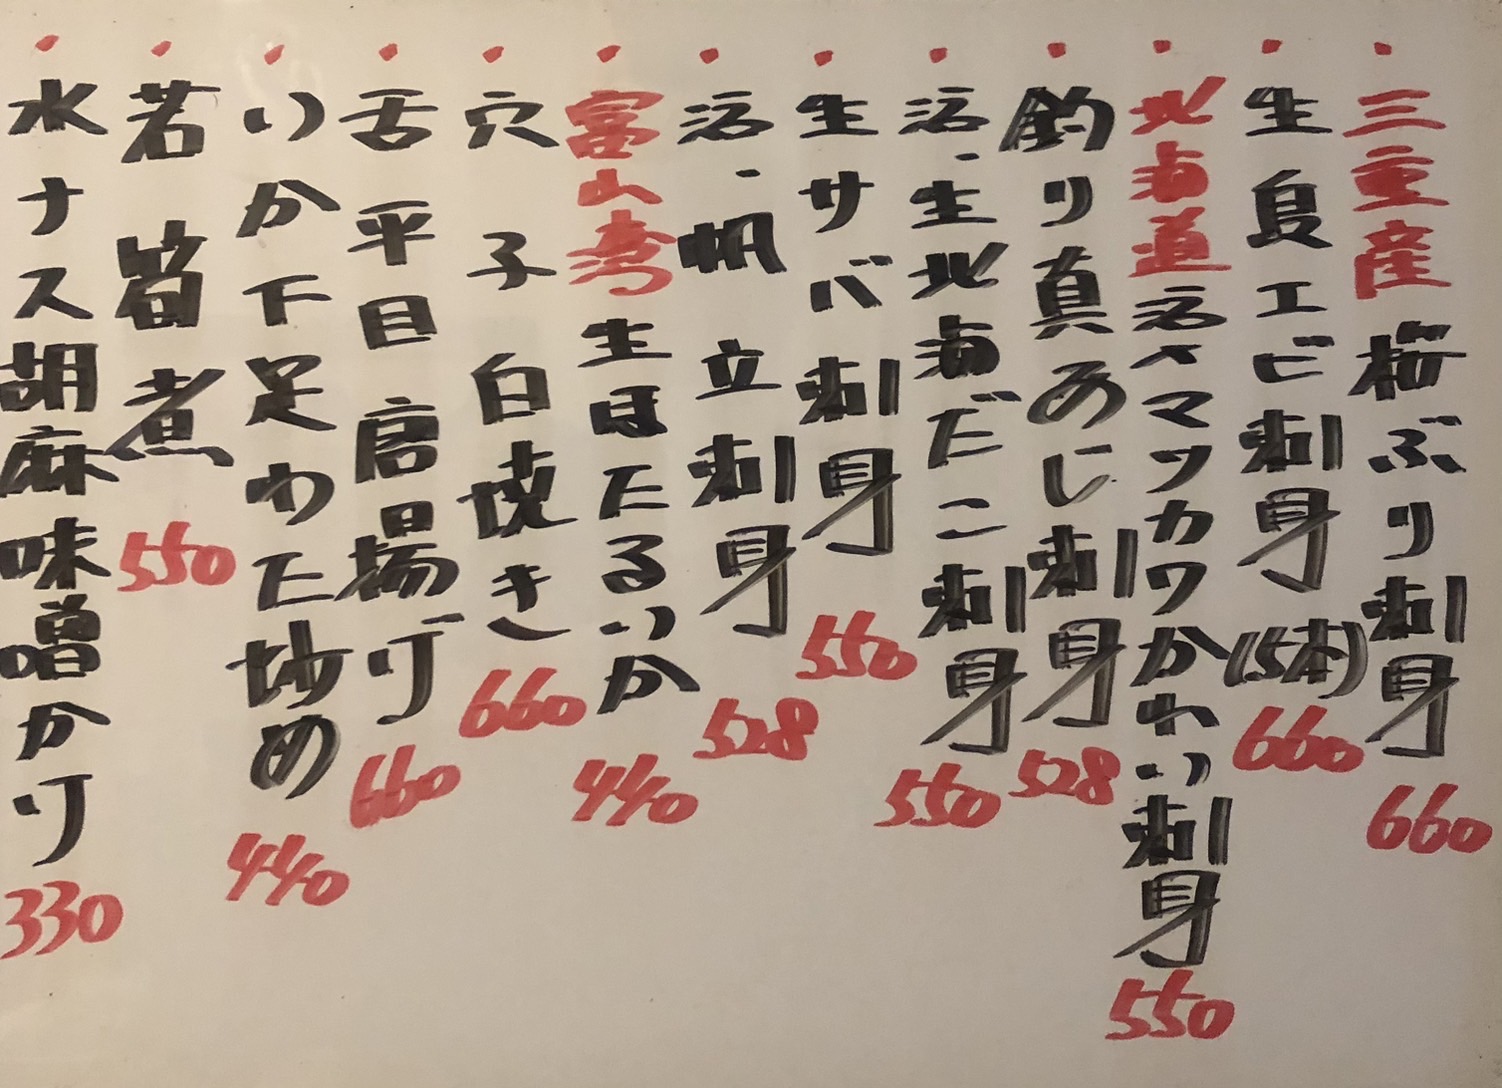 ・三重産桜ぶり刺身 660
・生白エビ刺身(15本) 660
・北海道活〆マツカワかれい刺身 550
・釣り真あじ刺身 528
・活・生北海だこ刺身 550
・活・帆立刺身 528
・生サバ刺身 550
・富山湾生ほたるいか 440
・穴子白焼き 660
・舌平目唐揚げ 660
・いか下足わた炒め 440
・若筍煮 550
・水ナス胡麻味噌かけ 330